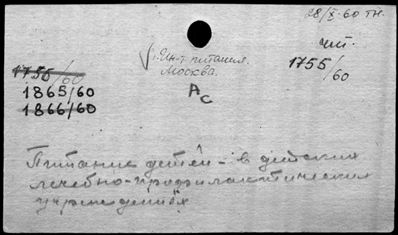 28/X-60 тн.
чит.
1755/60
√ Ин-т питания.
Москва.
1755/60
1865/60
1866/60
АС
Питание детей - в детских
лечебно-профилактических
учреждениях